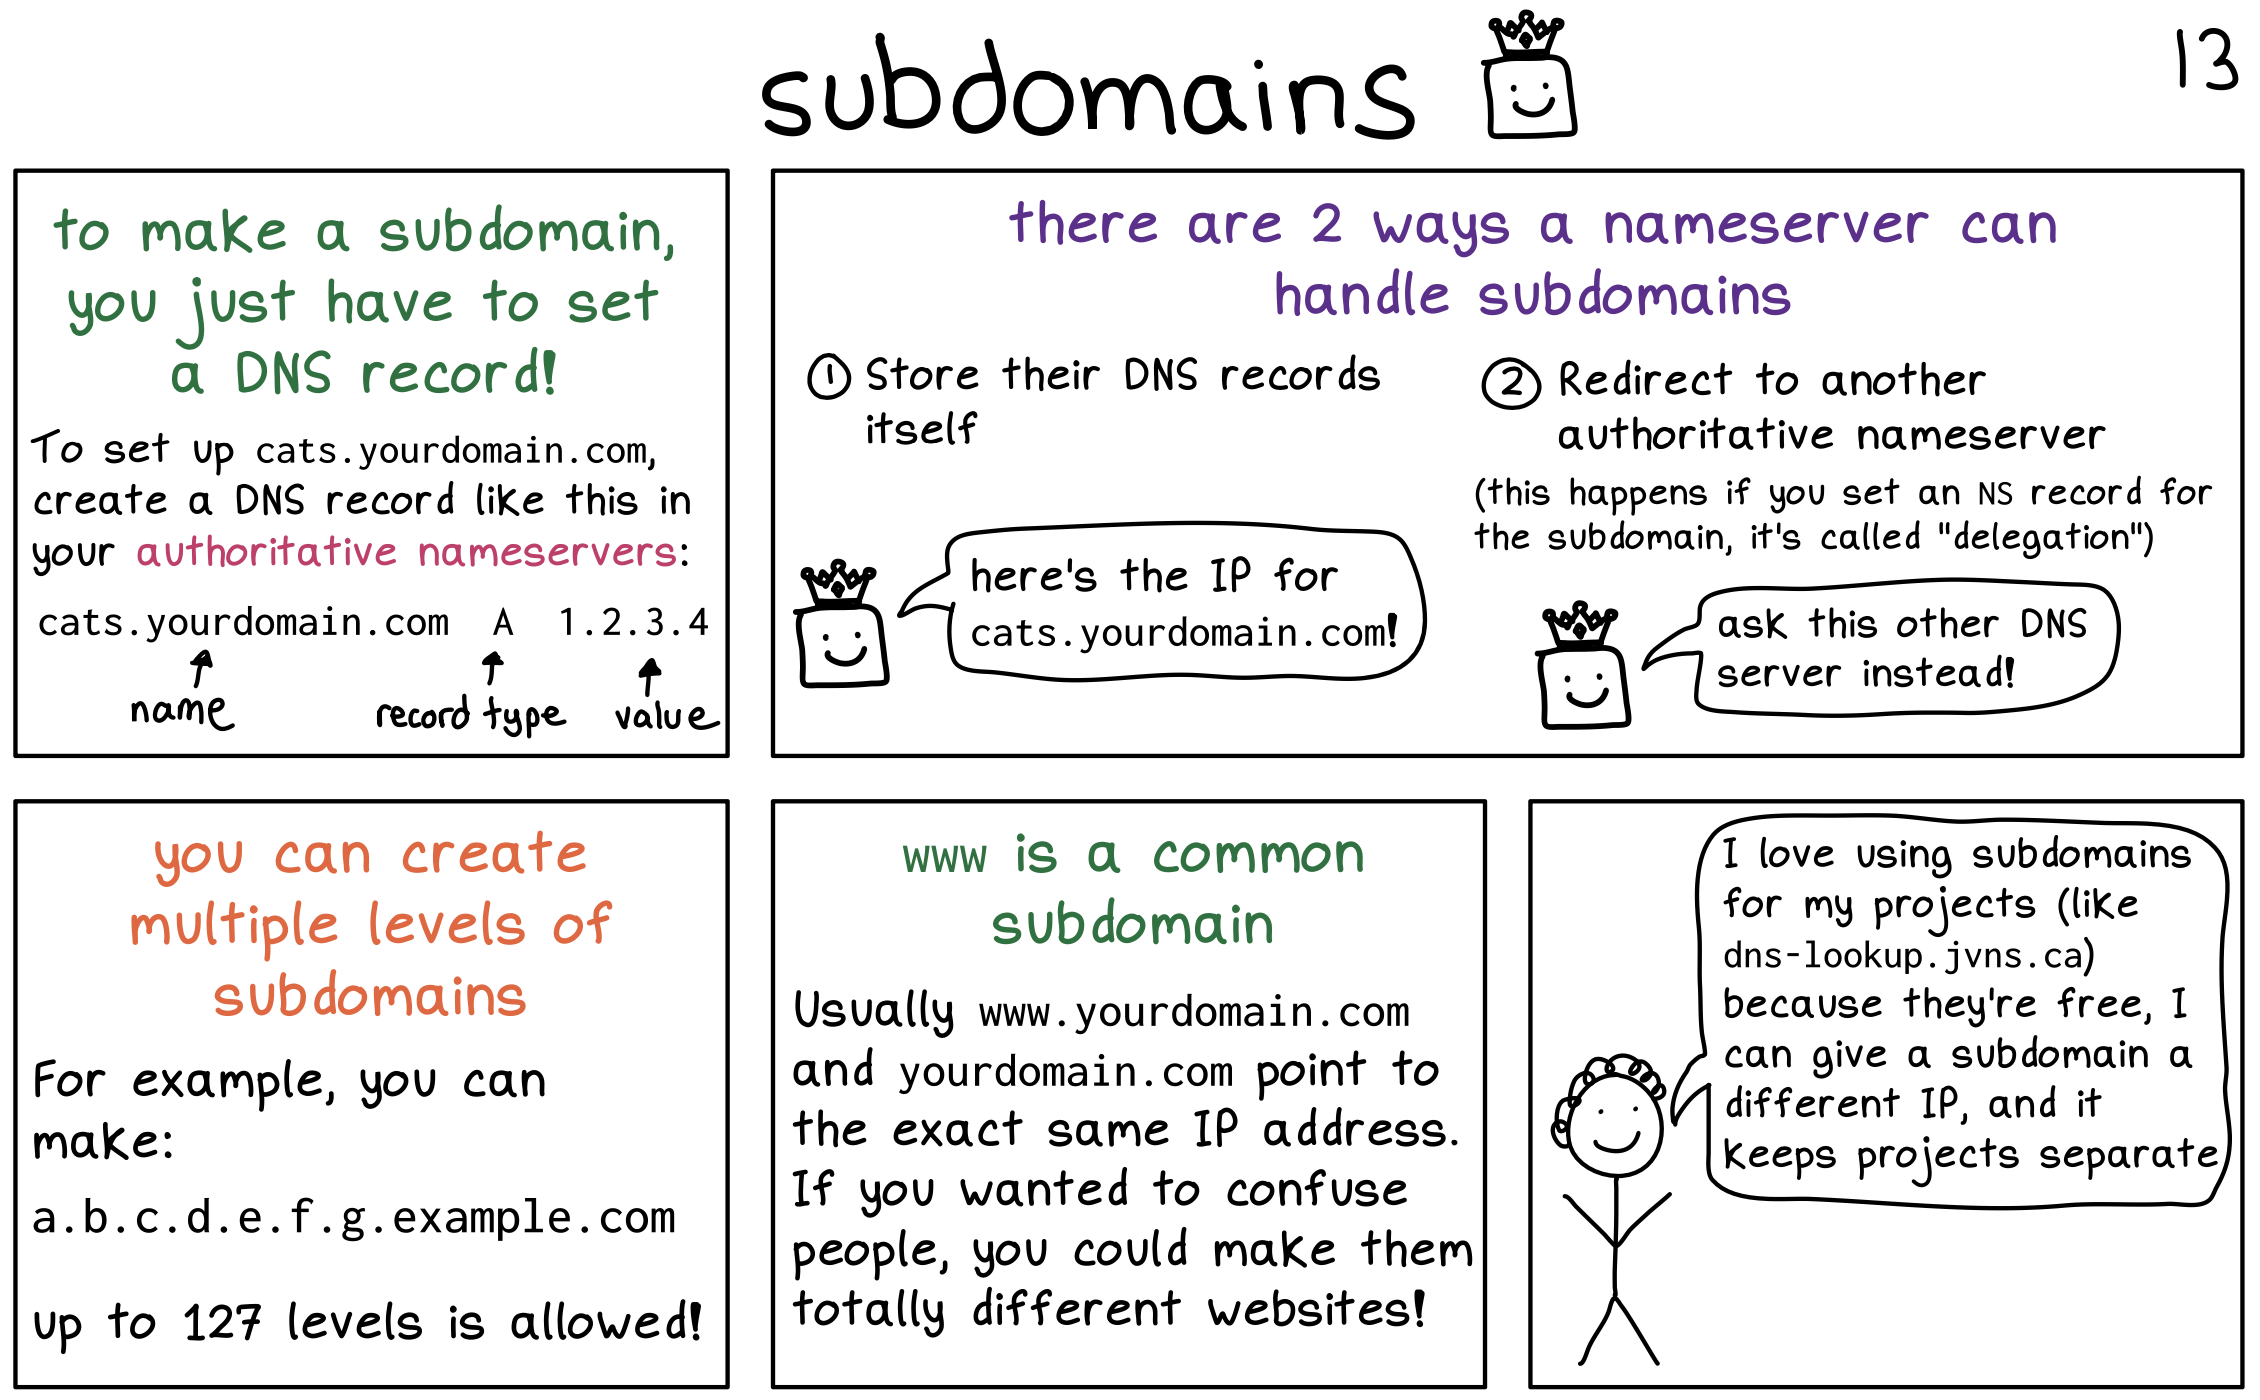 subdomains
13
to make a subdomain,
you just have to set
a DNS record!
To set up cats.yourdomain.com,
create a DNS record like this in
your authoritative nameservers:
cats.yourdomain.com A 1.2.3.4
name record type value
there are 2 ways a nameserver can
handle subdomains
① Store their DNS records
itself
here's the IP for
cats.yourdomain.com!
② Redirect to another
authoritative nameserver
(this happens if you set an NS record for
the subdomain, it's called "delegation")
ask this other DNS
server instead!
you can create
multiple levels of
subdomains
For example, you can
make:
a.b.c.d.e.f.g.example.com
up to 127 levels is allowed!
www is a common
subdomain
Usually www.yourdomain.com
and yourdomain.com point to
the exact same IP address.
If you wanted to confuse
people, you could make them
totally different websites!
I love using subdomains
for my projects (like
dns-lookup.jvns.ca)
because they're free, I
can give a subdomain a
different IP, and it
keeps projects separate